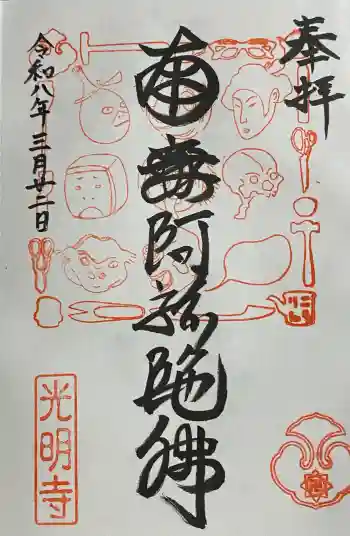 奉拝
南無阿弥陀佛
令和八年三月廿二日
光明寺